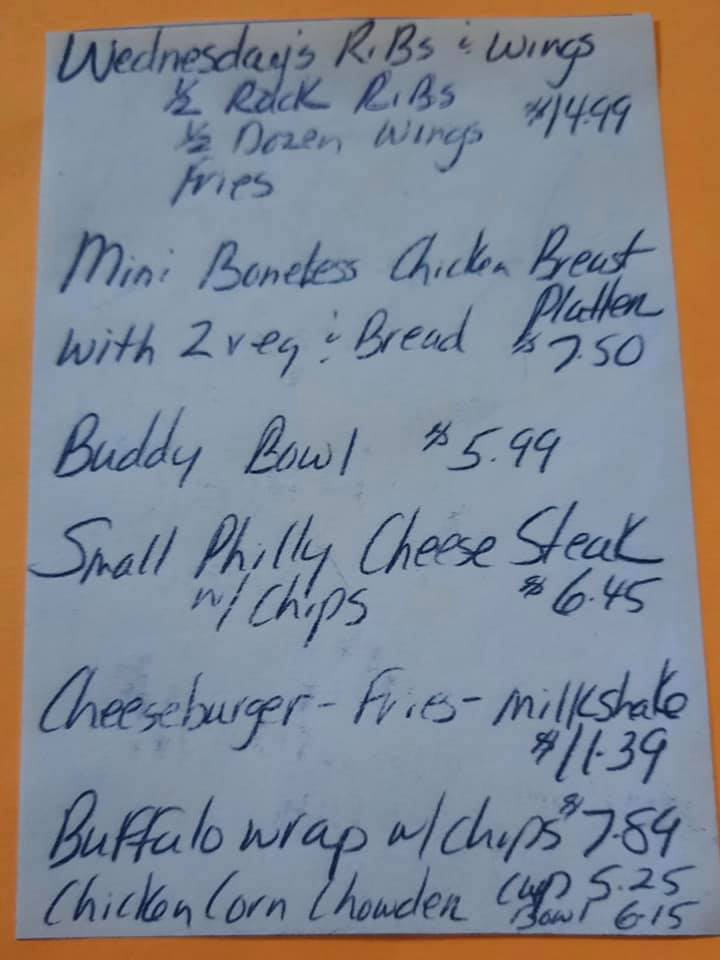 Wednesday's Ribs & Wings
1/2 Rack Ribs
$14.99
1/2 Dozen Wings
Fries
Mini Boneless Chicken Breast
Platter
with 2 veg & Bread $7.50
Buddy Bowl $5.99
Small Philly Cheese Steak
w/ Chips $6.45
Cheeseburger - Fries - milkshake
$11.39
Buffalo wrap w/ chips $7.89
Chicken Corn Chowder Cup 5.25
Bowl 6.15